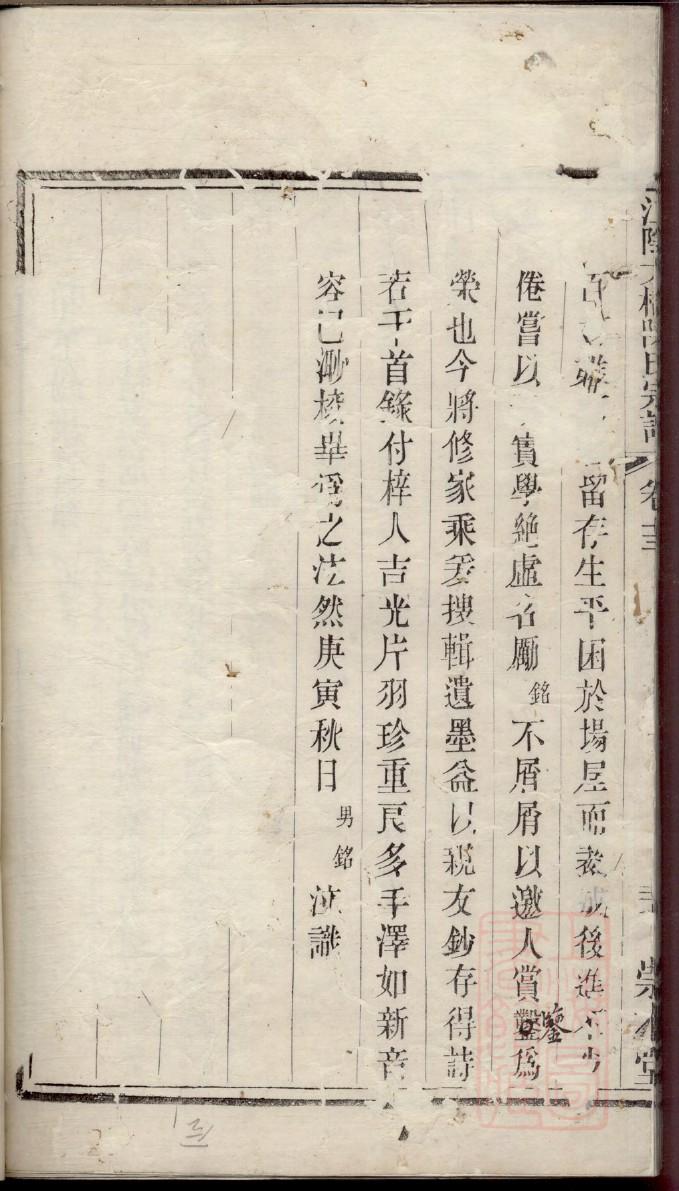 聯 留存生平困於場屋而教戒後進不少
倦嘗以 實學絕虛名勵銘不屑屑以邀人賞鑒為
榮也今將修家乘爰搜輯遺墨益以親友鈔存得詩
若干首錄付梓人吉光片羽珍重良多手澤如新音
容已渺校畢為之泫然庚寅秋日男銘泣識
鑒
宗譜 卷
崇 堂